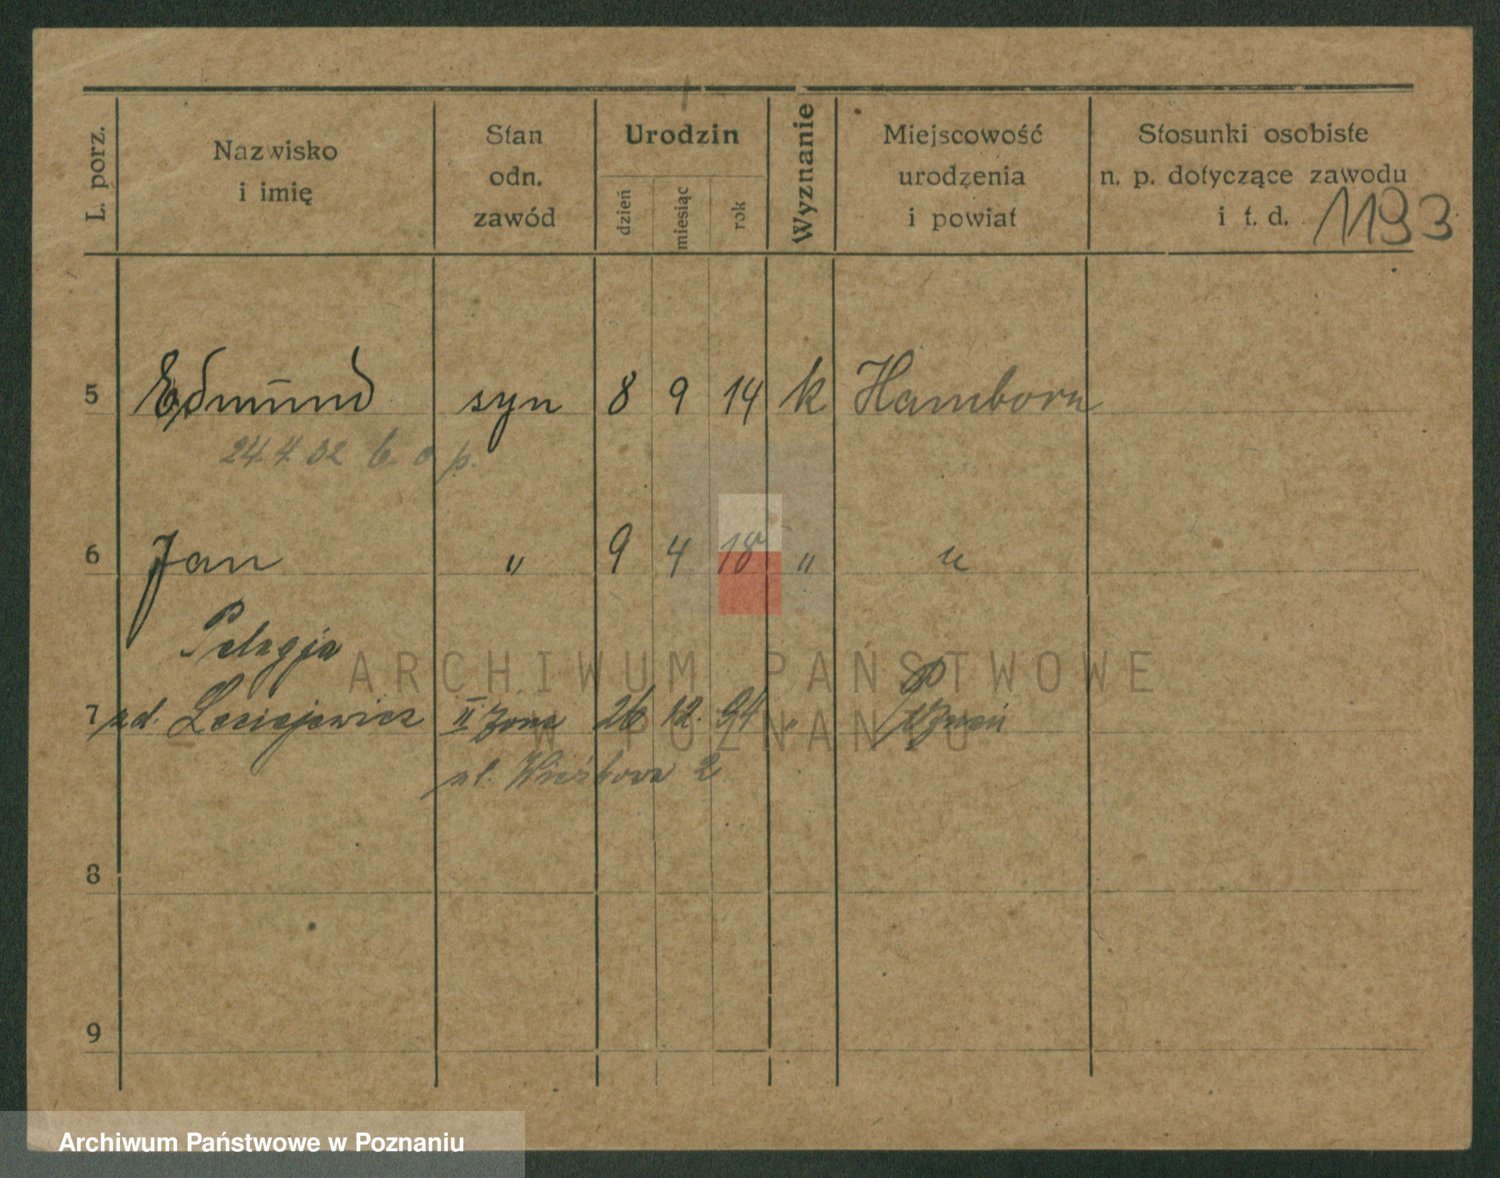 L. porz.
Nazwisko
i imię
Stan
odn.
zawód
Urodzin
dzień
miesiąc
rok
Wyznanie
Miejscowość
urodzenia
i powiat
Stosunki osobiste
n. p. dotyczące zawodu
i t. d.
1193
5 Edmund syn 8 9 14 k Hamborn
24.4.32 b. o p.
6 Jan " 9 4 18 " "
Pelagja
7 zd. II żona 26 12. 94 "
ul. 2
8
9
ARCHIWUM PAŃSTWOWE
W POZNANIU
Archiwum Państwowe w Poznaniu